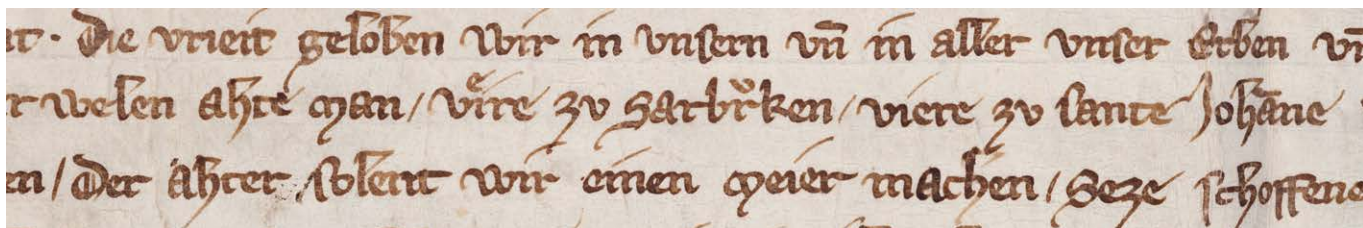 it · Die vrieit geloben wir in vnsern vn̄ in aller vnser Erben vn̄
r welen ahte man / viͤre zv Sarbrͦken / viere zv sante Johāne
en / Der ahter solent wir einen meier machen / Seze schoffene